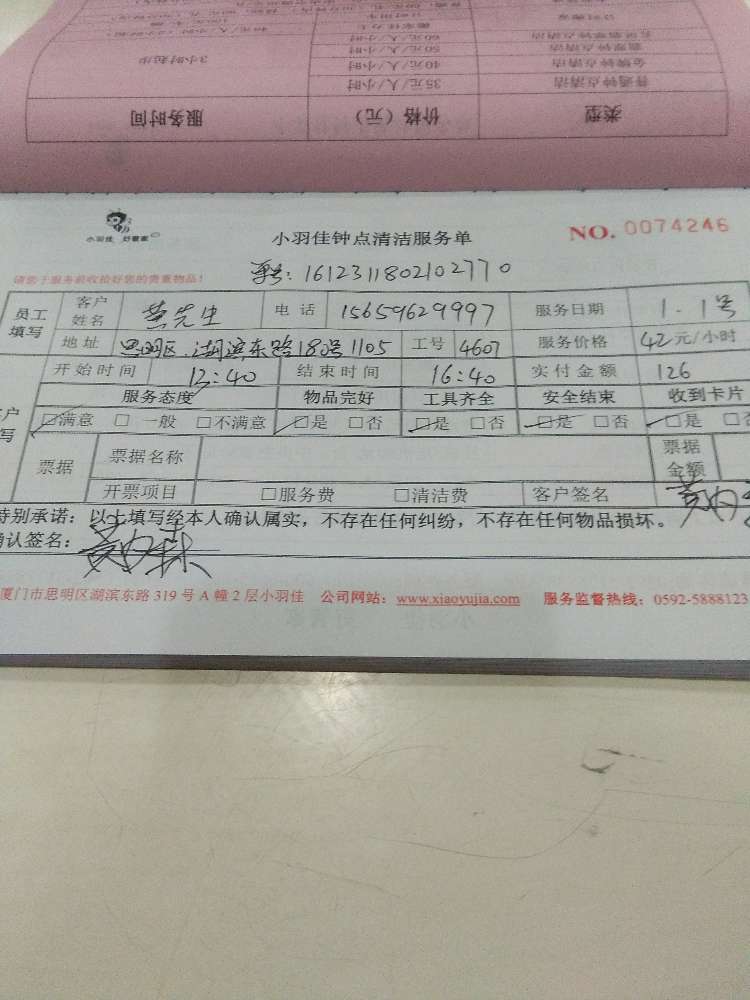 服务时间 价格（元） 类型
35元/人/小时 普通钟点清洁
3小时起步 40元/人/小时 金牌钟点清洁
50元/人/小时 翡翠钟点清洁
60元/人/小时
小羽佳 好管家
小羽佳钟点清洁服务单
NO. 0074246
请您于服务前收拾好您的贵重物品!
票号: 1612311802102770
员工填写 客户姓名 黄先生 电话 15659629997 服务日期 1.1号
地址 思明区.湖滨东路180号1105 工号 4607 服务价格 42元/小时
开始时间 13:40 结束时间 16:40 实付金额 126
服务态度 物品完好 工具齐全 安全结束 收到卡片
☑满意 □一般 □不满意 ☑是 □否 ☑是 □否 ☑是 □否 ☑是 □否
票据 票据名称 票据金额
开票项目 □服务费 □清洁费 客户签名
特别承诺：以上填写经本人确认属实，不存在任何纠纷，不存在任何物品损坏。
确认签名：
厦门市思明区湖滨东路 319 号 A 幢 2 层小羽佳 公司网站：www.xiaoyujia.com 服务监督热线：0592-5888123